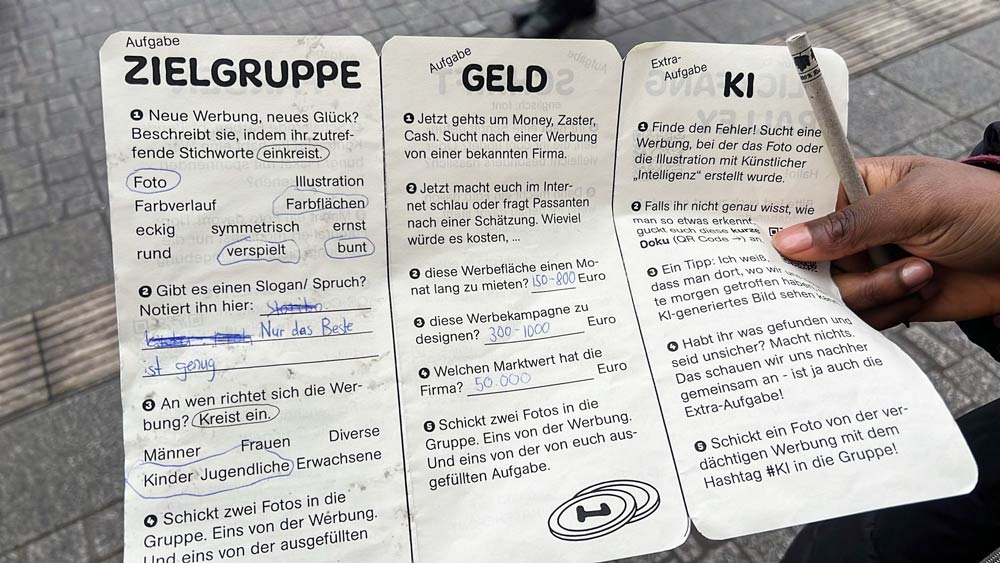 Aufgabe
ZIELGRUPPE
1 Neue Werbung, neues Glück?
Beschreibt sie, indem ihr zutref-
fende Stichworte einkreist.
Foto Illustration
Farbverlauf Farbflächen
eckig symmetrisch ernst
rund verspielt bunt
2 Gibt es einen Slogan/ Spruch?
Notiert ihn hier:
Nur das Beste
ist genug
3 An wen richtet sich die Wer-
bung? Kreist ein.
Männer Frauen Diverse
Kinder Jugendliche Erwachsene
4 Schickt zwei Fotos in die
Gruppe. Eins von der Werbung.
Und eins von der ausgefüllten
Aufgabe
GELD
1 Jetzt gehts um Money, Zaster,
Cash. Sucht nach einer Werbung
von einer bekannten Firma.
2 Jetzt macht euch im Inter-
net schlau oder fragt Passanten
nach einer Schätzung. Wieviel
würde es kosten, ...
2 diese Werbefläche einen Mo-
nat lang zu mieten? 150-800 Euro
3 diese Werbekampagne zu
designen? 300-1000 Euro
4 Welchen Marktwert hat die
Firma? 50.000 Euro
5 Schickt zwei Fotos in die
Gruppe. Eins von der Werbung.
Und eins von der von euch aus-
gefüllten Aufgabe.
Extra-
Aufgabe
KI
1 Finde den Fehler! Sucht eine
Werbung, bei der das Foto oder
die Illustration mit Künstlicher
„Intelligenz" erstellt wurde.
2 Falls ihr nicht genau wisst, wie
man so etwas erkennt,
guckt euch diese kurze
Doku (QR Code →) an.
3 Ein Tipp: Ich weiß,
dass man dort, wo wir
te morgen getroffen haben
KI-generiertes Bild sehen
4 Habt ihr was gefunden und
seid unsicher? Macht nichts.
Das schauen wir uns nachher
gemeinsam an - ist ja auch die
Extra-Aufgabe!
5 Schickt ein Foto von der ver-
dächtigen Werbung mit dem
Hashtag #KI in die Gruppe!